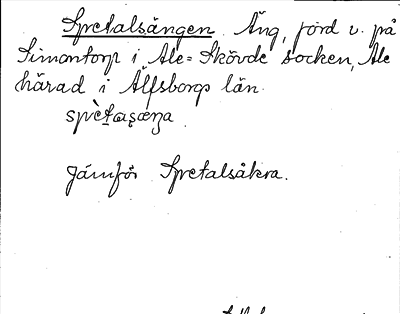 Spretalsängen. Äng, förd v. på
Simontorp i Ale-Skövde socken, Ale
härad i Älfsborgs län.
sprètaʂæŋa.
Jämför Spretalsåkra.